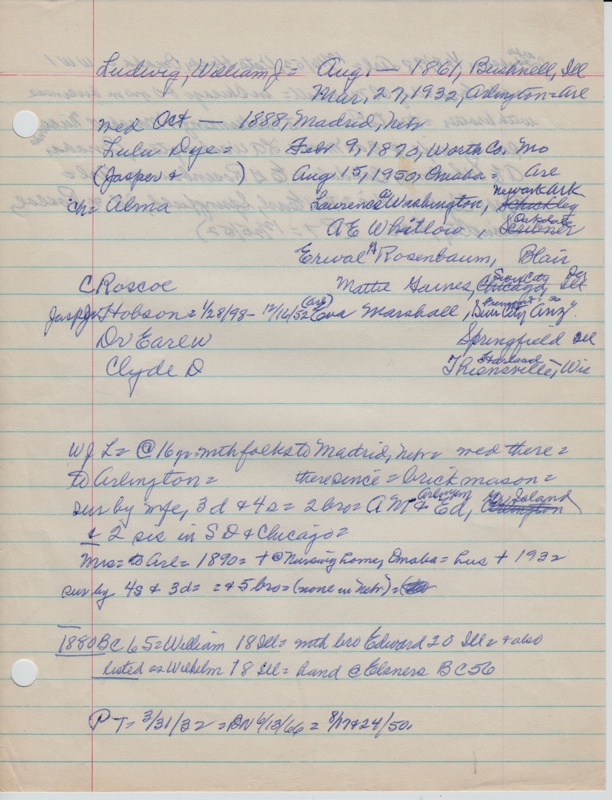 Ludwig, William J = Aug. — 1861, Bushnell, Ill
Mar, 27, 1932, Arlington = Arl
med Oct — 1888, Madrid, Nebr
Lulu Dye = Feb 9, 1870, Worth Co. Mo
(Jasper & ) Aug 15, 1950, Omaha = Arl
ch = Alma Lawrence Washington, Newark Ark
A E Whitlow, Oakdale Scribner
Erwal Rosenbaum, Blair
C Roscoe Mattie Gaines, Chicago, Ill
Hobson = 1/28/98 - 12/16/52 (Arl) Eva Marshall, Sun City Ariz
Dr Earl W Springfield Ill
Clyde D Thiensville, Wis
W J L = @ 16 yr = with folks to Madrid, Nebr = med there =
to Arlington = there since = brick mason =
sur by wife, 3 d & 4 s = 2 bro = A M Arlington & Ed, Gr Island Arlington
& 2 sis in S D & Chicago =
Mrs = to Arl = 1890 = + @ Nursing home, Omaha = hus + 1932
sur by 4 s & 3 d = = & 5 bro = (none in Nebr) =
1880 BC 65 = William 18 Ill = with bro Edward 20 Ill = & also
listed as Wilhelm 18 Ill = hand @ Elsners BC 56
P T = 3/31/32 = BN 6/13/66 = 8/17 & 24/50.